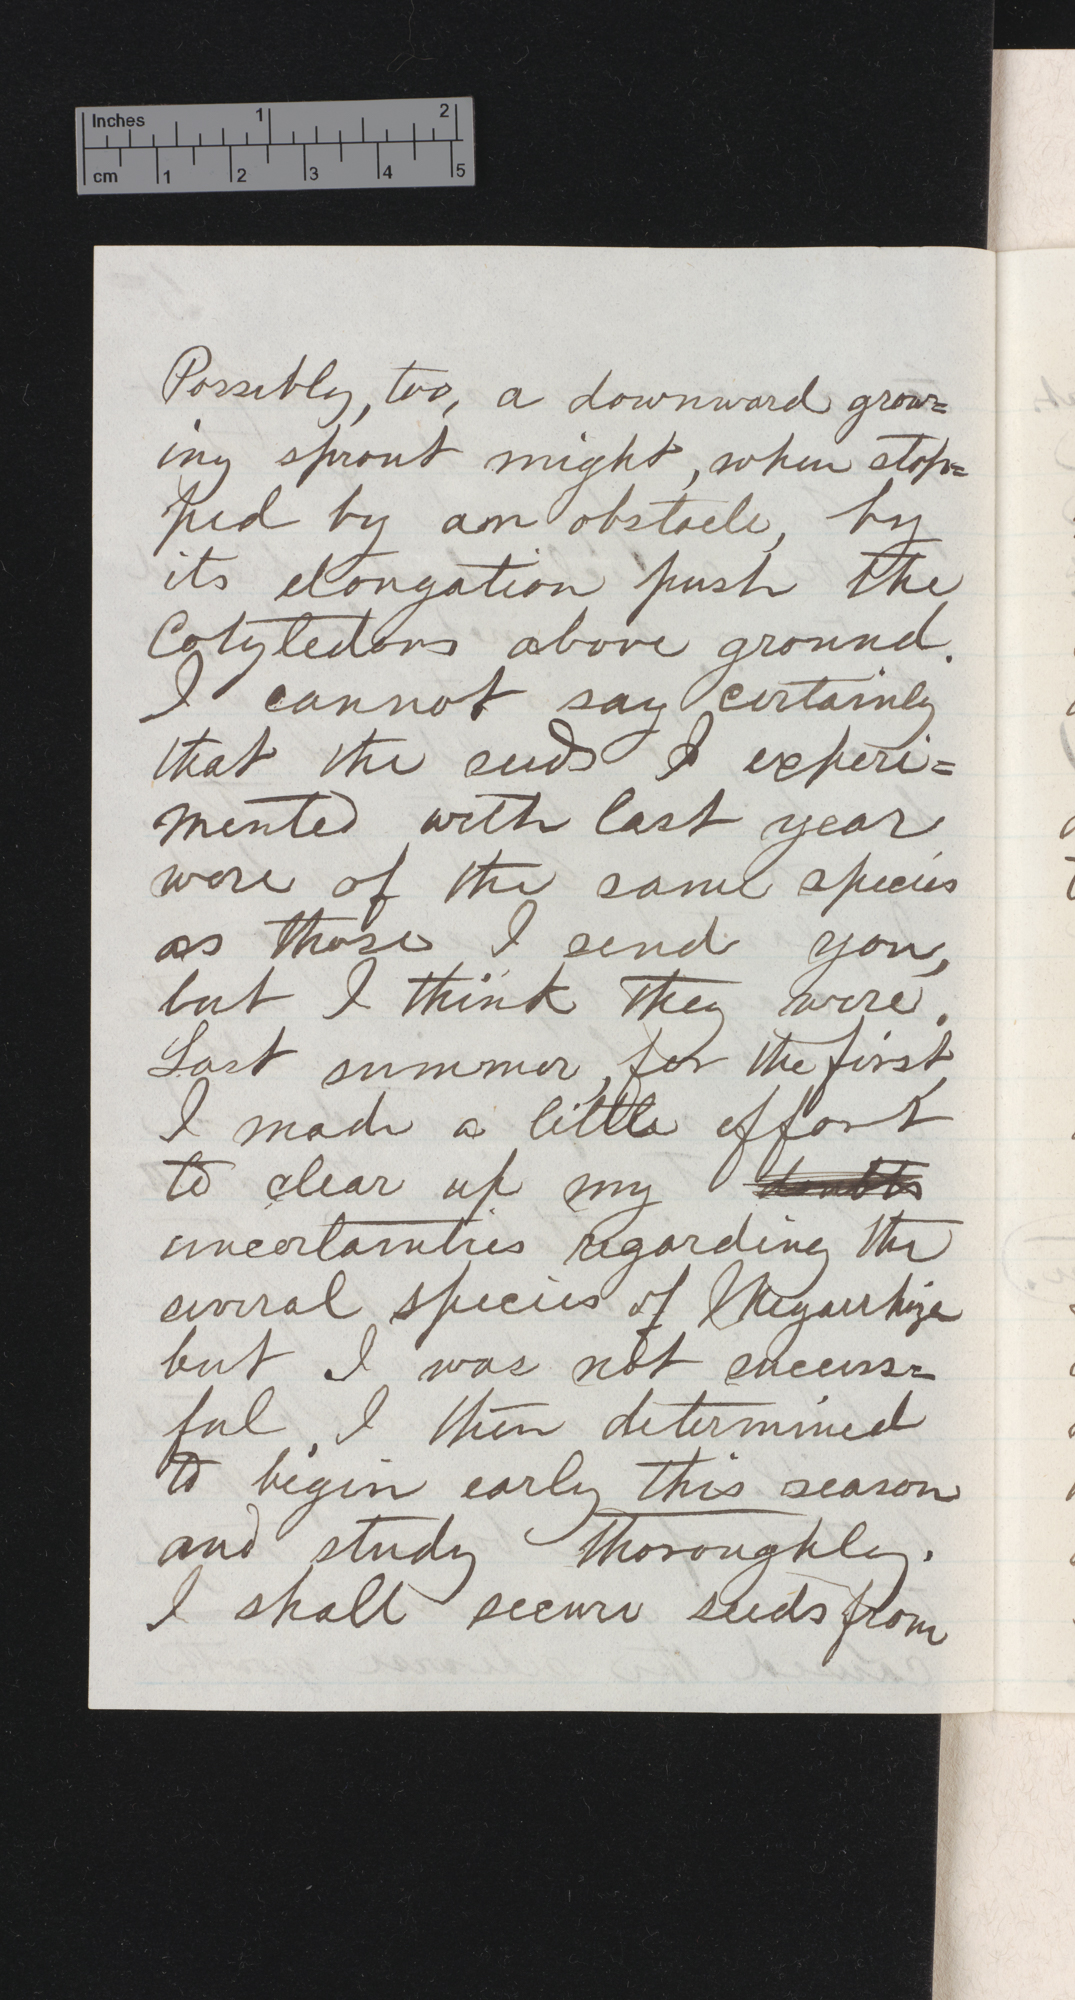 Inches 1 2
cm 1 2 3 4 5
Possibly, too, a downward grow=
ing sprout might, when stop=
ped by an obstacle, by
its elongation push the
Cotyledons above ground.
I cannot say certainly
that the seeds I experi=
mented with last year
were of the same species
as those I send you,
but I think they were.
Last summer, for the first,
I made a little effort
to clear up my doubts
uncertainties regarding the
several species of Megarrhiza
but I was not success=
ful. I then determined
to begin early this season
and study thoroughly.
I shall secure seeds from